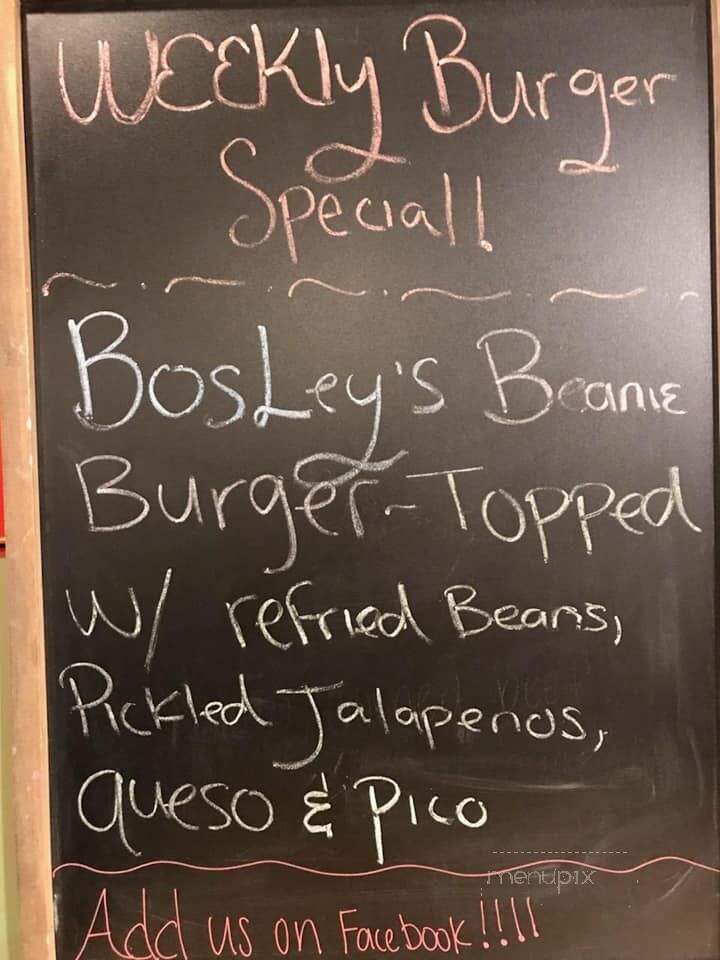 Weekly Burger
Special!
Bosley's Beanie
Burger-Topped
w/ refried Beans,
Pickled Jalapenos,
queso & Pico
menupix
Add us on Facebook!!!!